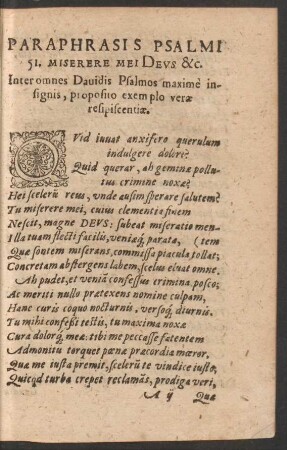 PARAPHRASIS PSALMI
51. MISERERE MEI DEVS &c.
Inter omnes Dauidis Psalmos maximè in-
signis, proposito exemplo veræ
resipiscentiæ.
QVid iuuat anxifero querulum
indulgere dolori?
Quid querar, ah geminæ pollu-
tus crimine noxæ?
Hei scelerũ reus, vnde ausim sperare salutem?
Tu miserere mei, cuius clementia finem
Nescit, magne DEVS: subeat miseratio men-
Illa tuam flecti facilis, veniaq́; parata, (tem
Quæ sontem miserans, commissa piacula tollat;
Concretam abstergens labem, scelus eluat omne.
Ah pudet, et veniã confessus crimina posco;
Ac meriti nullo prætexens nomine culpam,
Hanc curis coquo nocturnis, versoq́; diurnis.
Tu mihi confessi testis, tu maxima noxæ
Cura dolorq́; meæ: tibi me peccasse fatentem
Admonitu torquet pœnæ præcordia mœror,
Qua me iusta premit, scelerũ te vindice iusto,
Quicqd turba crepet reclamãs, prodiga veri,
A ij Quæ